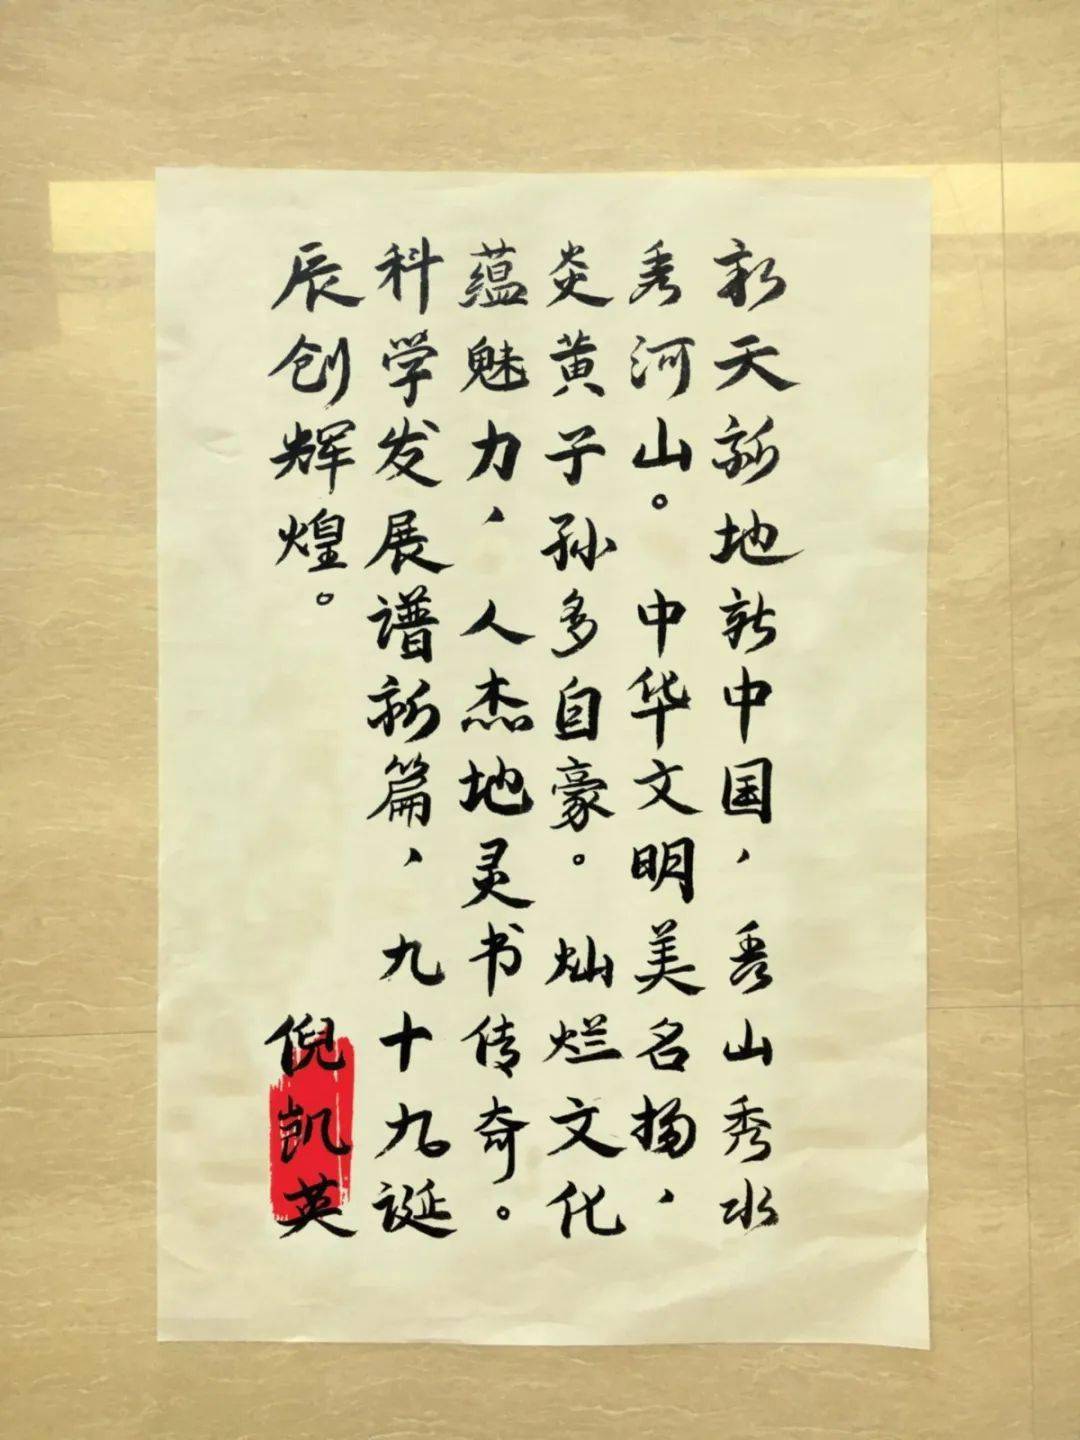 新天新地新中国，秀山秀水
秀河山。中华文明美名扬，
炎黄子孙多自豪。灿烂文化
蕴魅力，人杰地灵书传奇。
科学发展谱新篇，九十九诞
辰创辉煌。
倪凯英